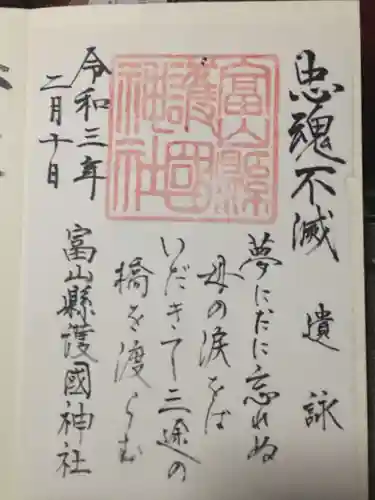 忠魂不滅
遺詠
夢にだに忘れぬ
母の涙をば
いだきて三途の
橋を渡らむ
富山縣護國神社
令和三年
二月十日
富山縣護國神社